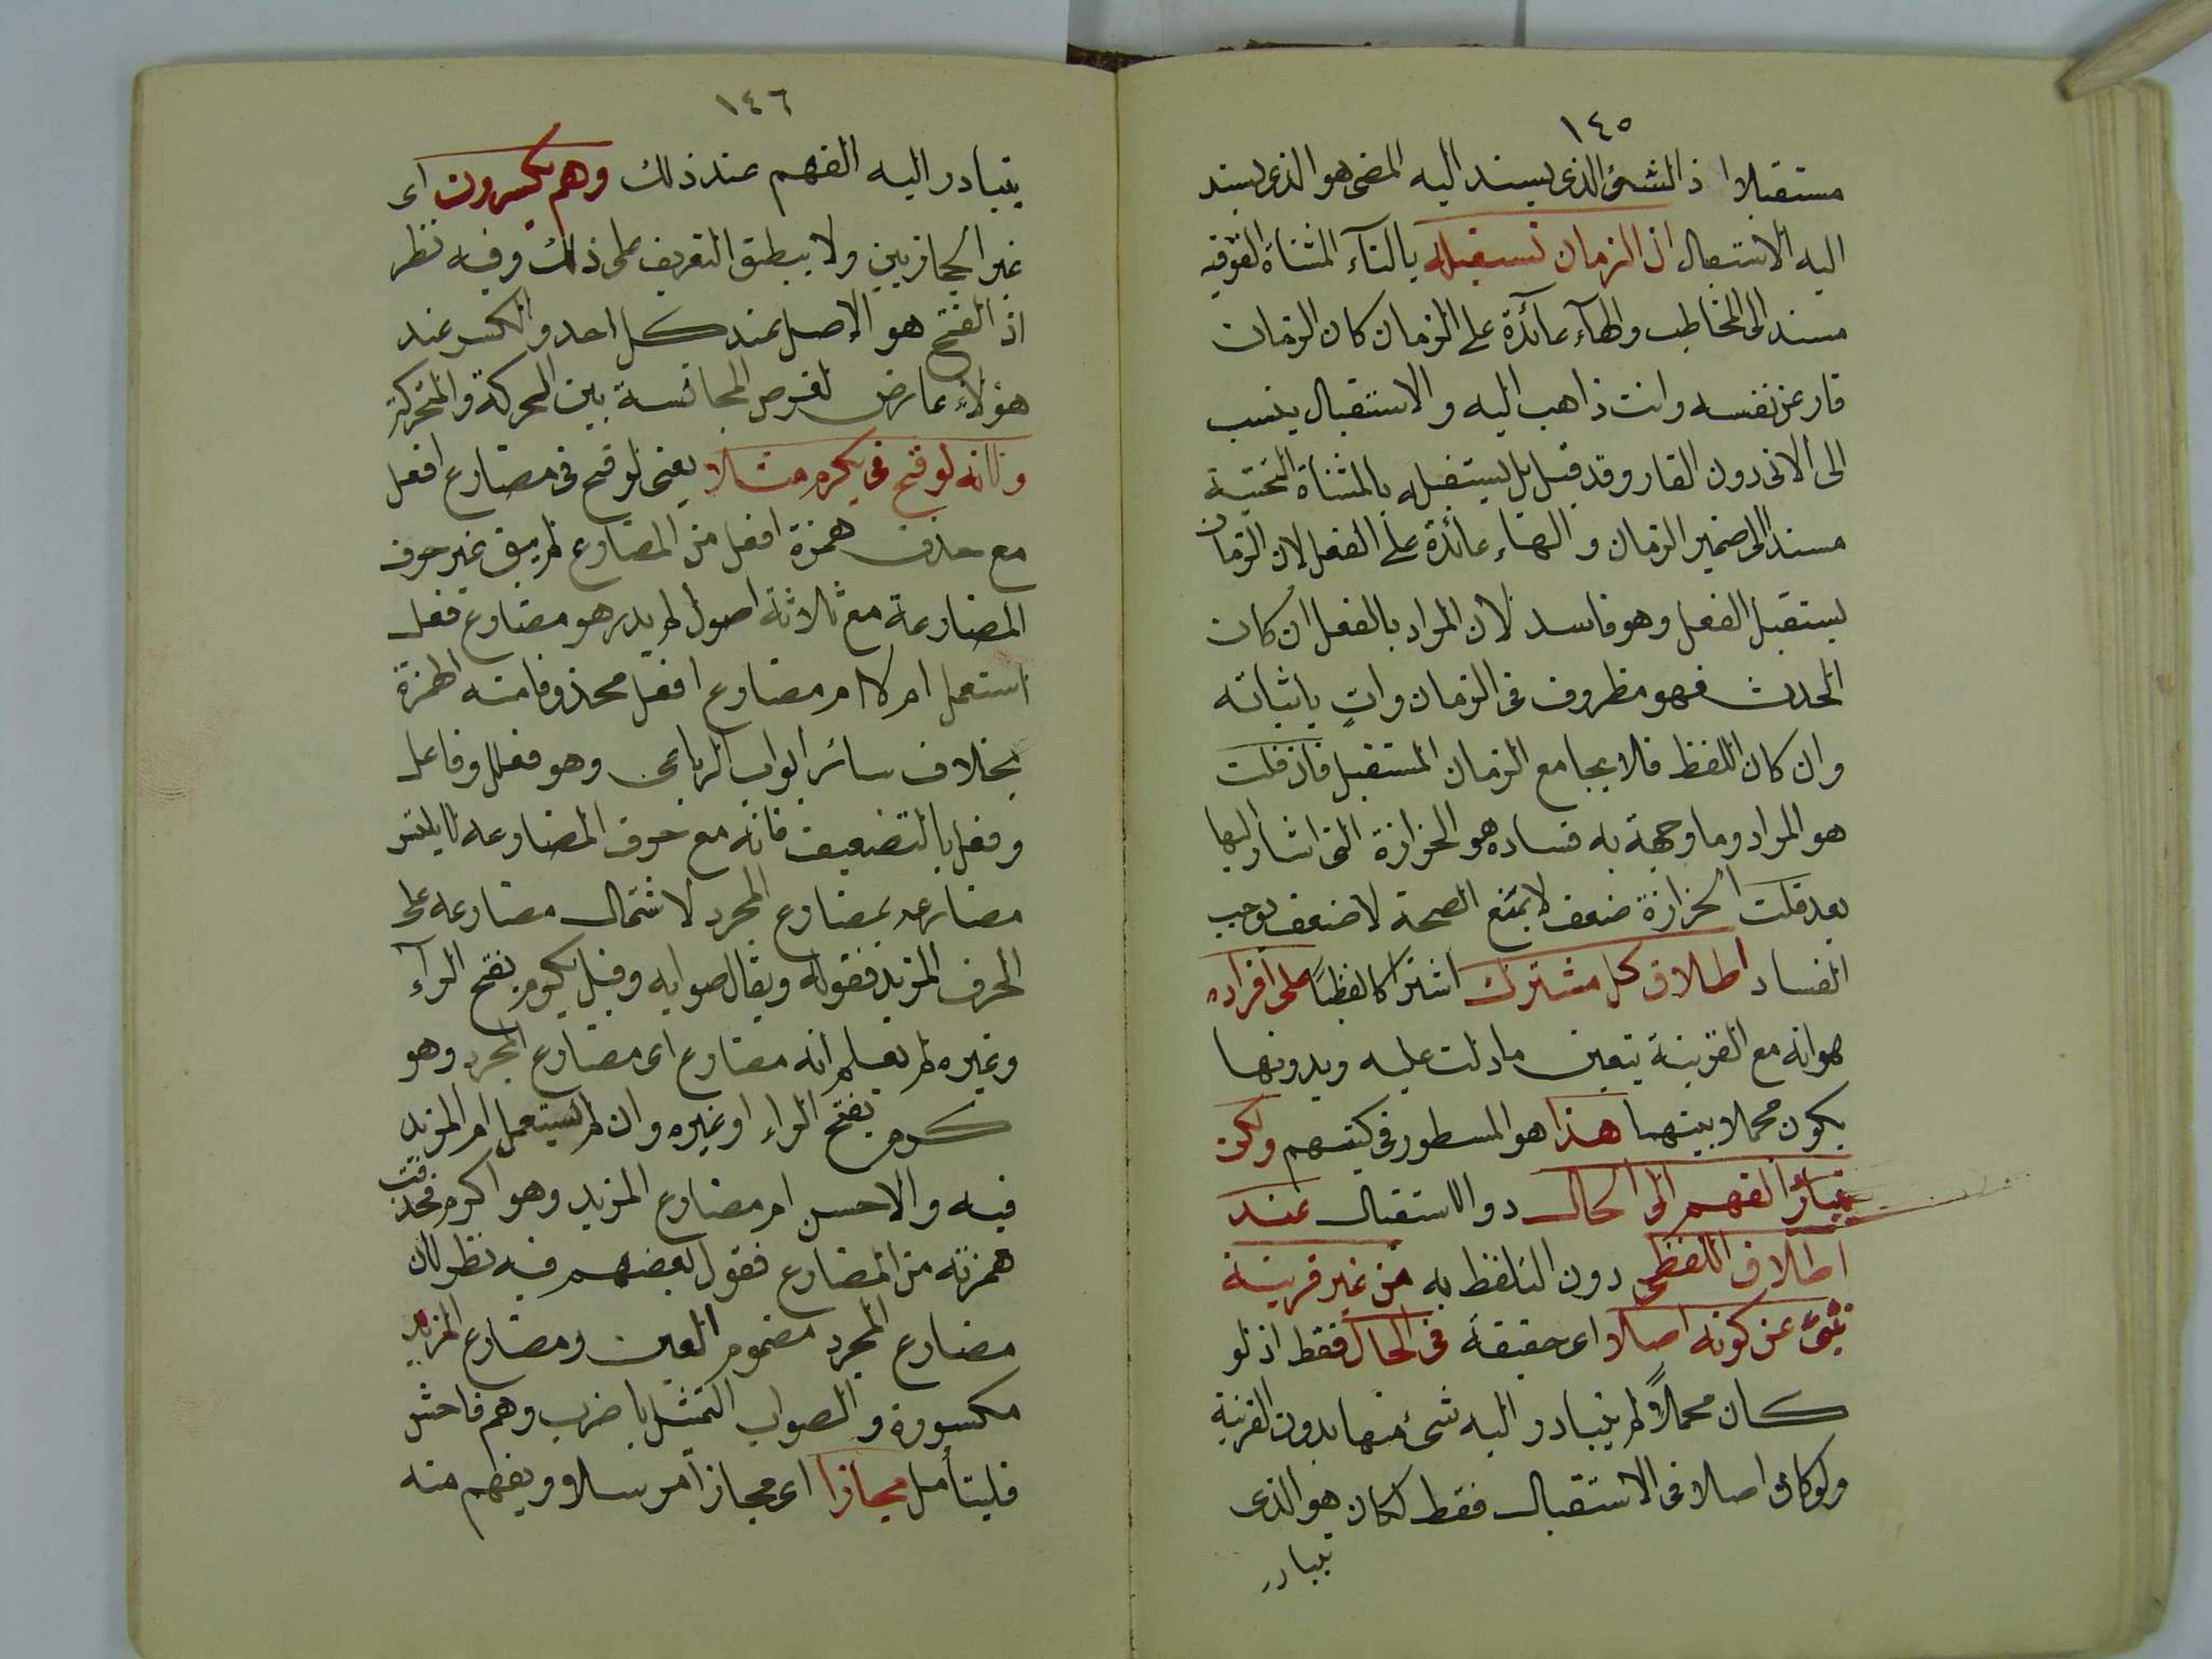 ١٤٥
مستقبلا اذ الشئ الذى يسند اليه المضى هو الذى يسند
اليه الاستقبال ان الزمان تستقبله بالتآء المثناة الفوقيه
مسندا الى المخاطب والهآء عائدة على الزمان كان الزمان
قار عن نفسه وانت ذاهب اليه والاستقبال ينسب
الى الاتى دون القار وقد قيل بل يستقبله بالمثناة التحتية
مسندا الى ضمير الزمان والهاء عائدة على الفعل لان الزمان
يستقبل الفعل وهو فاسد لان المراد بالفعل ان كان
الحدث فهو مظروف فى الزمان وات باثباته
وان كان اللفظ فلا يجامع الزمان المستقبل فان قلت
هو المراد وما وجهة به فساده هو الحزازة التى اشار اليها
بعد قلت الحزازة ضعف لا يمنع الصحة لا ضعف يوجب
الفساد اطلاق كل مشترك اشتراكا لفظيًا على افراده
هو انه مع القرينة يتعين ما دلت عليه وبدونها
يكون مجملا بينهما هذا هو المسطور فى كتبهم ولكن
تبادر الفهم الى الحال دون الاستقبال عند
اطلاق اللفظ دون التلفظ به من غير قرينة
تنبئ عن كونه اصلا اى حقيقة فى الحال فقط اذ لو
كان مجملاً لم يتبادر اليه شئ منها بدون القرينة
ولو كان اصلا فى الاستقبال فقط لكان هو الذى
يتبادر
١٤٦
يتبادر اليه الفهم عند ذلك وهم يكسرون اى
غير الحجازيين ولا ينطبق التعريف على ذلك وفيه نظر
اذ الفتح هو الاصل عند كل احد والكسر عند
هؤلاء عارض لغرض المجانسة بين الحركة والمتحركة
ولانه لو فتح فى يكرم مثلا يعنى لو فتح فى مضارع افعل
مع حذف همزة افعل من المضارع لم يبق غير حرف
المضارعة مع ثلاثة اصول لم يدر هو مضارع فعل
استعمل ام لا ام مضارع افعل محذوفا منه الهمزة
بخلاف سائر ابواب الرباعى وهو فعلل وفاعل
وفعل بالتضعيف فانه مع حرف المضارعه لا يلتبس
مضارعه بمضارع المجرد لاشتمال مضارعه على
الحرف المزيد فقوله ويقال صوابه وقيل يكرم بفتح الرآء
وغيره لم يعلم انه مضارع اى مضارع المجرد وهو
كرم بفتح الراء او غيره وان لم يستعمل ام المزيد
فيه والاحسن ام مضارع المزيد وهو اكرم فحذفت
همزته من المضارع فقول بعضهم فيه نظر لان
مضارع المجرد مضموم العين ومضارع المزيد
مكسورة والصواب التمثيل باضرب وهم فاحش
فليتأمل مجازا اى مجازا مرسلا ويفهم منه